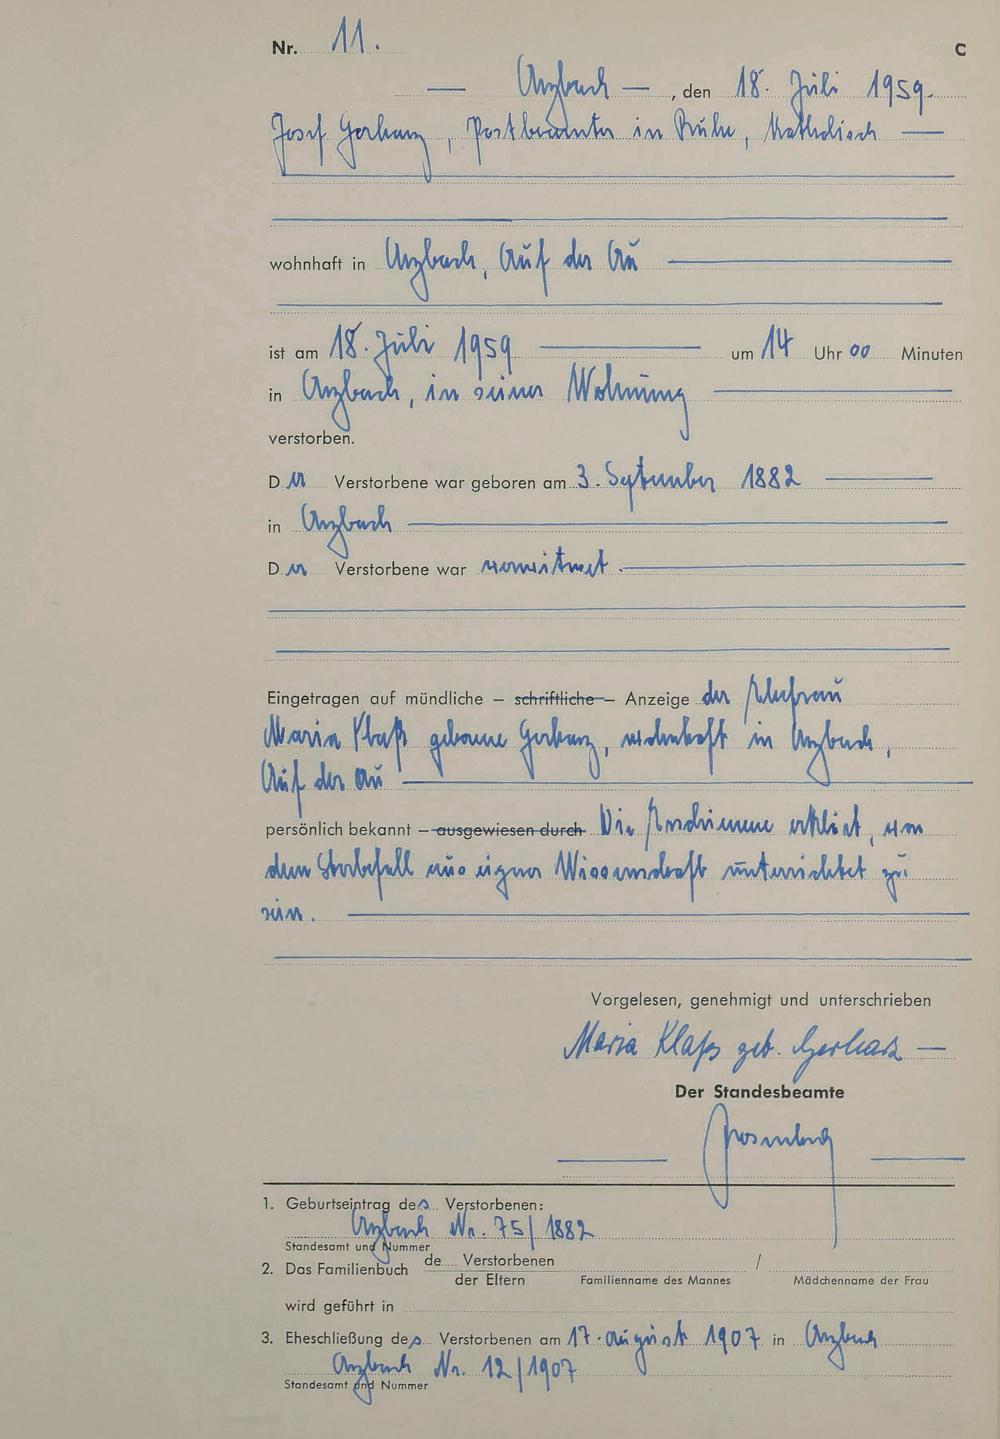 Nr. 11. C
— Arzbach — , den 18. Juli 1959.
Josef Gerharz, Postbeamter in Ruhe, katholisch —
wohnhaft in Arzbach, Auf der Au
ist am 18. Juli 1959 um 14 Uhr 00 Minuten
in Arzbach, in seiner Wohnung
verstorben.
Der Verstorbene war geboren am 3. September 1882
in Arzbach
Der Verstorbene war verwitwet.
Eingetragen auf mündliche – schriftliche – Anzeige der Ehefrau
Maria Klaß geborene Gerharz, wohnhaft in Arzbach,
Auf der Au
persönlich bekannt – ausgewiesen durch Die Erschienene erklärt, von
dem Sterbefall aus eigener Wissenschaft unterrichtet zu
sein.
Vorgelesen, genehmigt und unterschrieben
Maria Klaß geb. Gerharz —
Der Standesbeamte
1. Geburtseintrag des Verstorbenen:
Arzbach Nr. 75/1882
Standesamt und Nummer
2. Das Familienbuch de Verstorbenen /
der Eltern Familienname des Mannes Mädchenname der Frau
wird geführt in
3. Eheschließung des Verstorbenen am 17. August 1907 in Arzbach
Arzbach Nr. 12/1907
Standesamt und Nummer